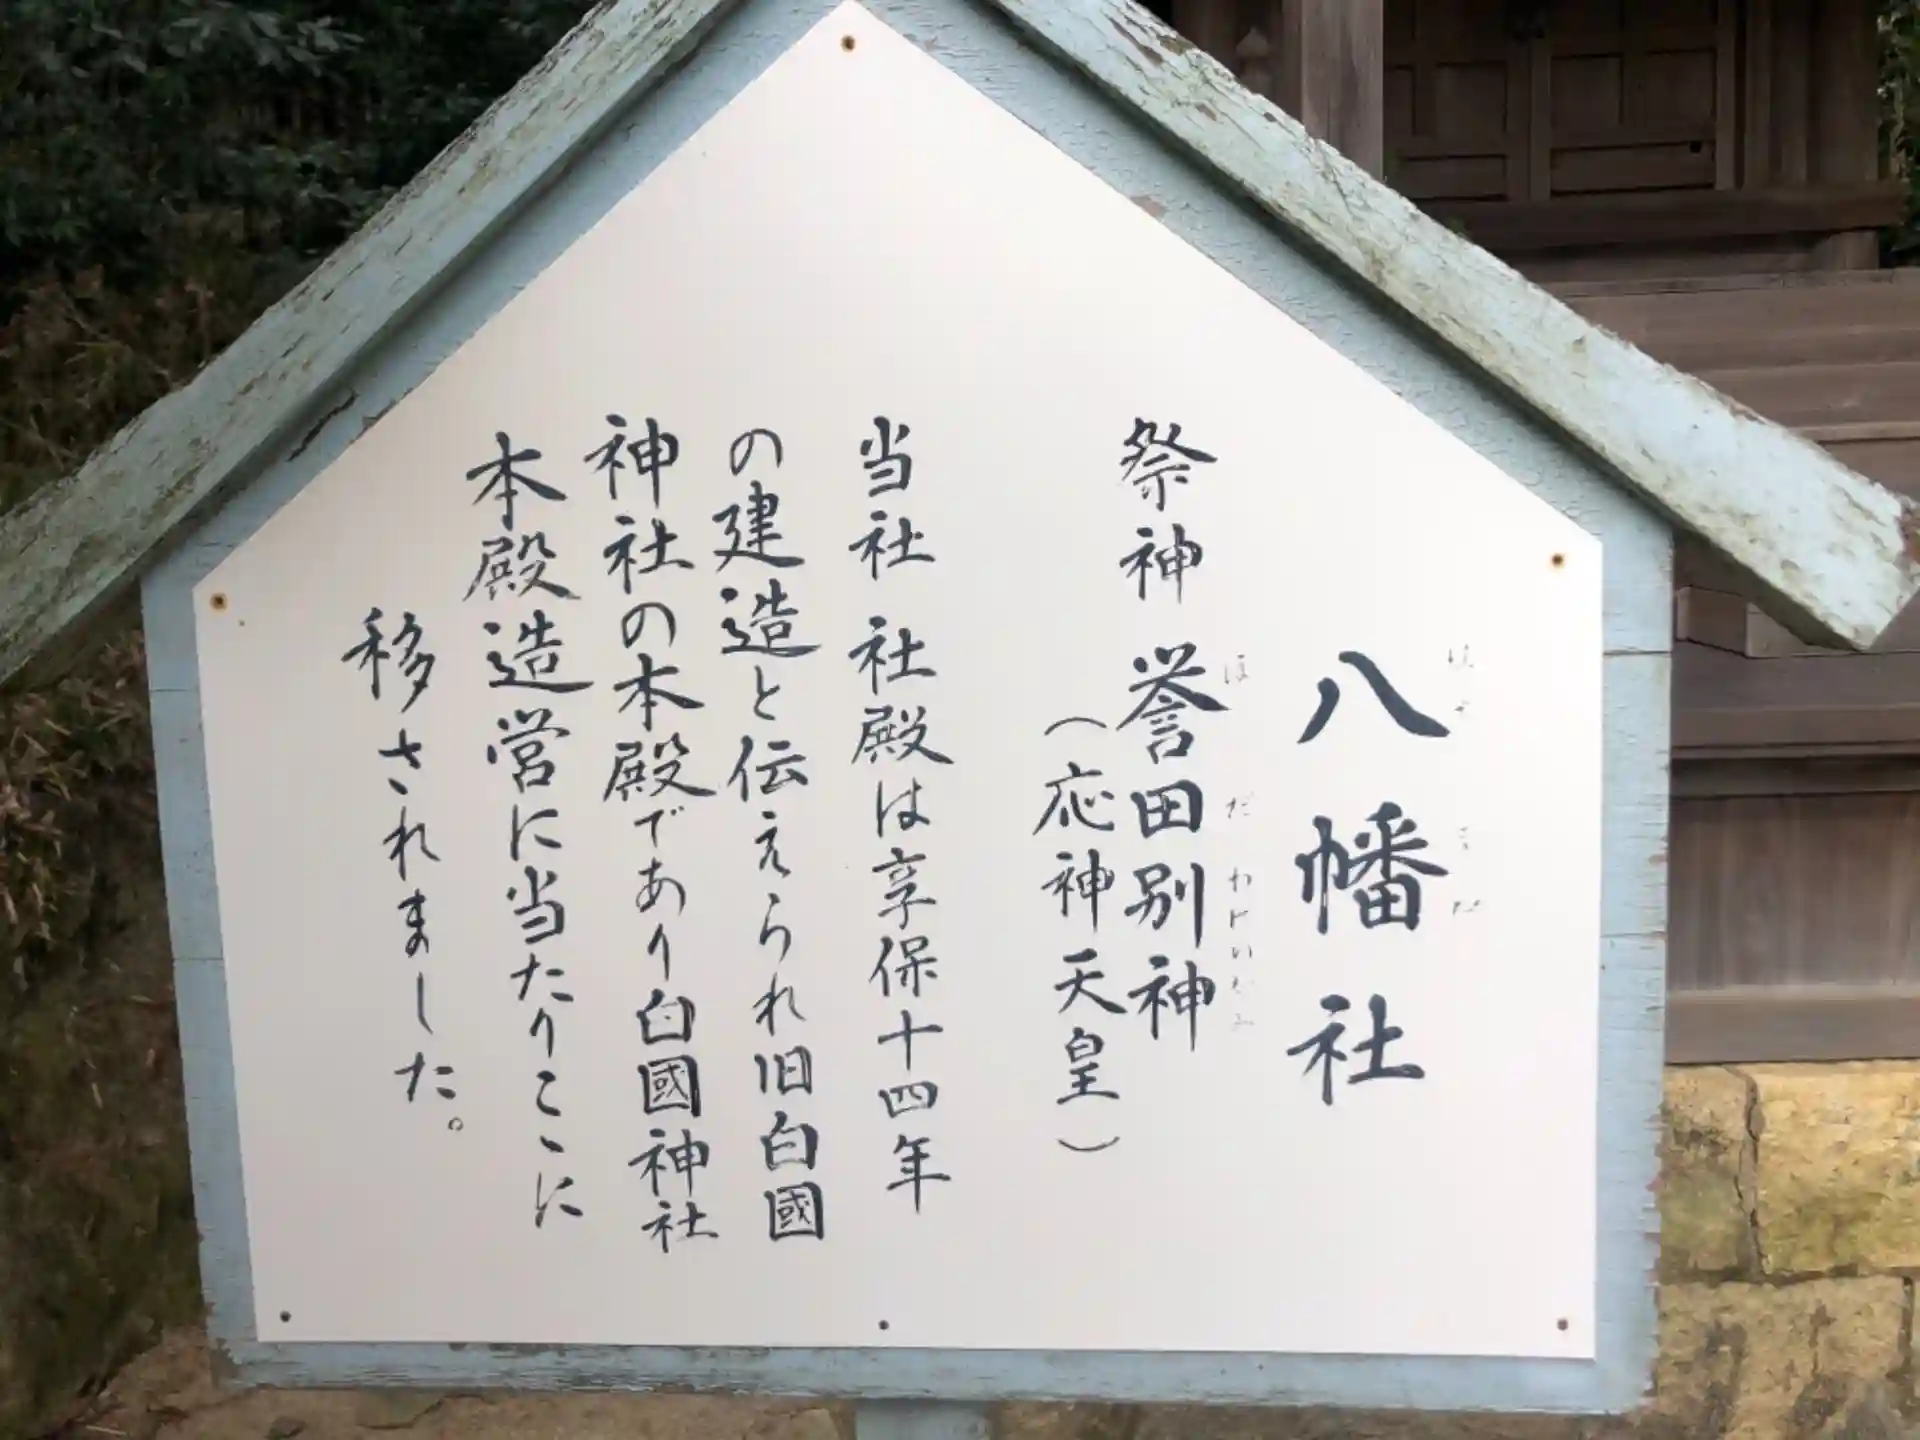 八幡社
祭神 誉田別神
ほだわけいかみ
(応神天皇)
当社 社殿は享保十四年
の建造と伝えられ旧白國
神社の本殿であり白國神社
本殿造営に当たりこゝに
移されました。